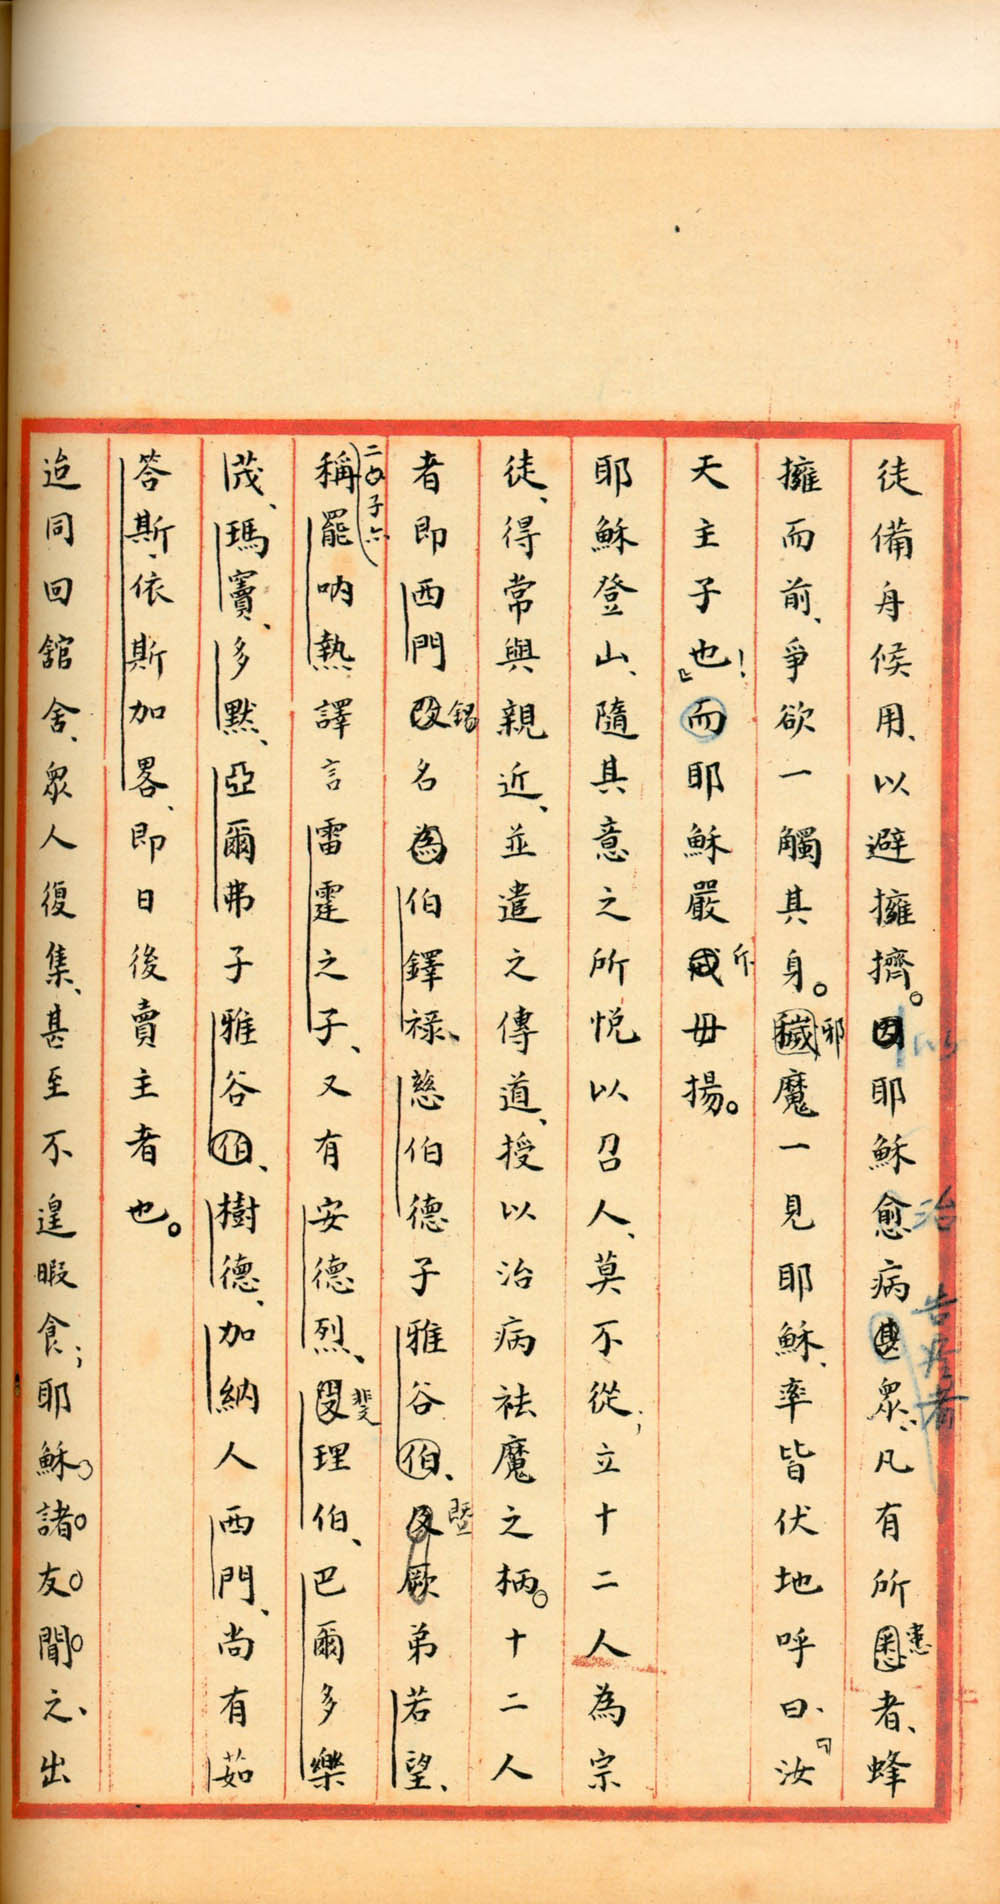 徒備舟候用、以避擁擠。因耶穌愈病甚眾、凡有所患者、蜂
以
治
告痊者
患
擁而前、爭欲一觸其身。穢魔一見耶穌、率皆伏地呼曰、『汝
邪
天主子也！』而耶穌嚴戒毋揚。
斥
耶穌登山、隨其意之所悅以召人、莫不從；立十二人為宗
徒、得常與親近、並遣之傳道、授以治病祛魔之柄。十二人
者即西門改名為伯鐸祿、慈伯德子雅谷伯、及厥弟若望、
錫
暨
稱罷吶熱譯言雷霆之子、又有安德烈、理伯、巴爾多樂
斐
茂、瑪竇、多默、亞爾弗子雅谷伯、樹德、加納人西門、尚有茹
答斯、依斯加畧、即日後賣主者也。
迨同回舘舍、眾人復集、甚至不遑暇食；耶穌諸友聞之、出